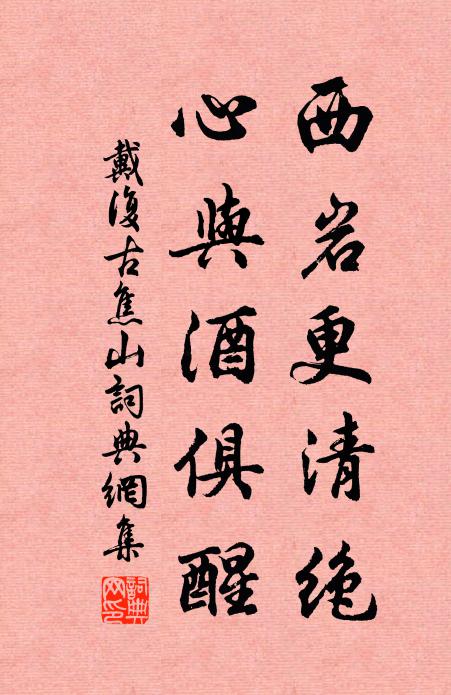 西岩更清绝
心與酒俱醒
戴復古焦山詞典網集
詞典網印